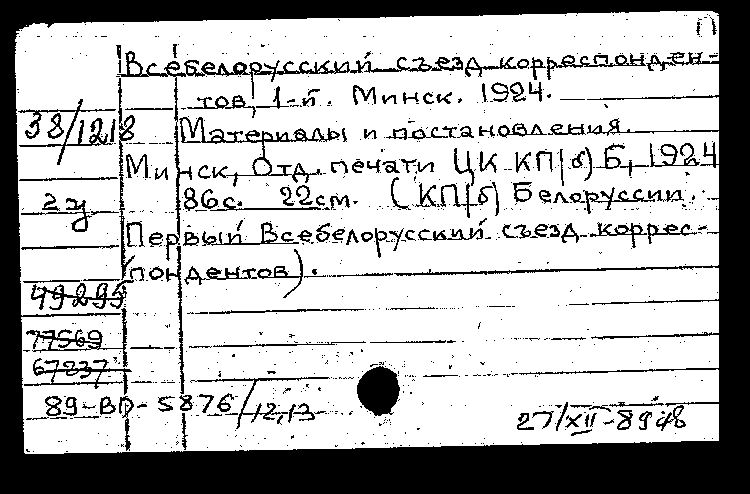 П
Всебелорусский съезд корреспонден-
тов, 1-й. Минск. 1924.
38/1218 Материалы и постановления.
Минск, Отд. печати ЦК КП(б)Б, 1924
86с. 22см. (КП(б) Белоруссии.
Первый Всебелорусский съезд коррес-
пондентов).
49295
77569
67237
89-ВО-5876/12,13
27/XII-89